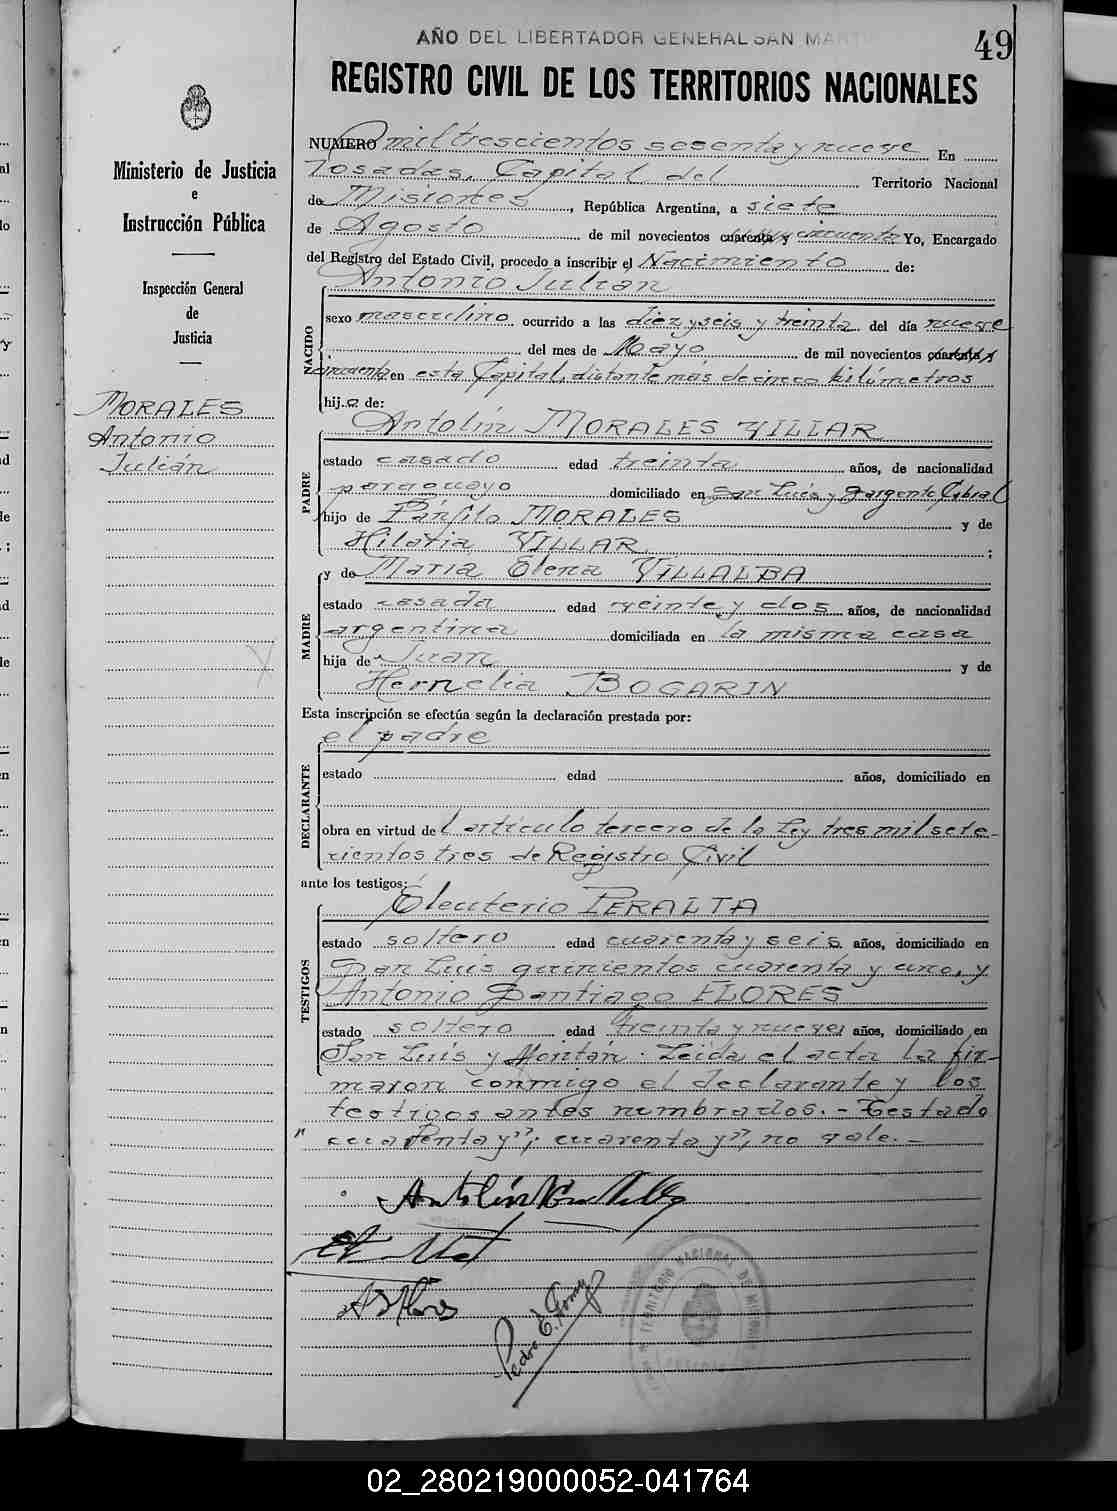 AÑO DEL LIBERTADOR GENERAL SAN MART
49
REGISTRO CIVIL DE LOS TERRITORIOS NACIONALES
Ministerio de Justicia
e
Instrucción Pública
Inspección General
de
Justicia
MORALES
Antonio
Julián
NUMERO mil trescientos sesenta y nueve En
Posadas, Capital del Territorio Nacional
de Misiones, República Argentina, a siete
de Agosto de mil novecientos cuarenta y cincuenta Yo, Encargado
del Registro del Estado Civil, procedo a inscribir el Nacimiento de:
Antonio Julián
NACIDO
sexo masculino ocurrido a las diez y seis y treinta del día nueve
del mes de Mayo de mil novecientos cuarenta y
cincuenta en esta Capital, distante más de cinco kilómetros
hij o de:
Antolín MORALES VILLAR
PADRE
estado casado edad treinta años, de nacionalidad
paraguayo domiciliado en San Luis y Sargento Cabral
hijo de Pánfilo MORALES y de
Hilaria VILLAR ;
y de María Elena VILLALBA
MADRE
estado casada edad veinte y dos años, de nacionalidad
argentina domiciliada en la misma casa
hija de Juan y de
Hernelia BOGARIN
Esta inscripción se efectúa según la declaración prestada por:
el padre
DECLARANTE
estado edad años, domiciliado en
obra en virtud de l artículo tercero de la Ley tres mil sete-
cientos tres de Registro Civil
ante los testigos:
Eleuterio PERALTA
TESTIGOS
estado soltero edad cuarenta y seis años, domiciliado en
San Luis quinientos cuarenta y uno, y
Antonio Santiago FLORES
estado soltero edad treinta y nueve años, domiciliado en
San Luis y . Leída el acta la fir-
maron conmigo el declarante y los
testigos antes nombrados. - Testado
" cuarenta y"; cuarenta y", no vale. -
Antolín
A S Flores
Pedro E.
TERRITORIO NACIONAL DE MISIONES
02_280219000052-041764